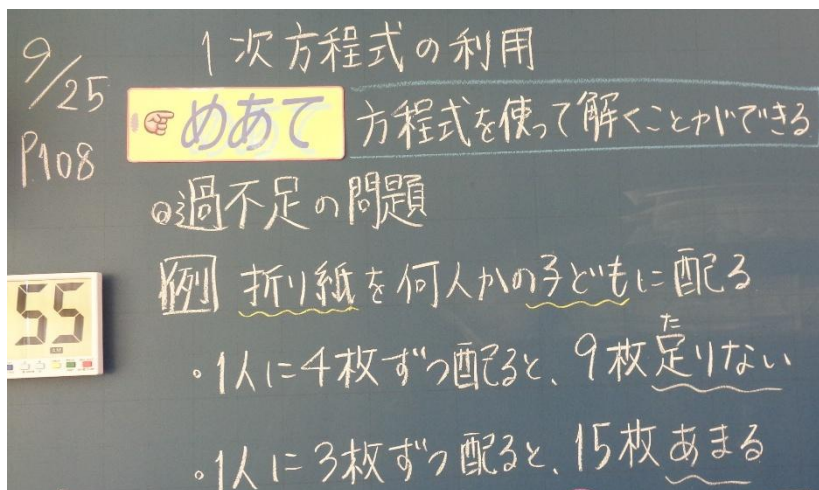 9/25
P.108
1次方程式の利用
めあて 方程式を使って解くことができる
◎過不足の問題
例 折り紙を何人かの子どもに配る
・1人に4枚ずつ配ると、9枚足りない
た
・1人に3枚ずつ配ると、15枚あまる
55